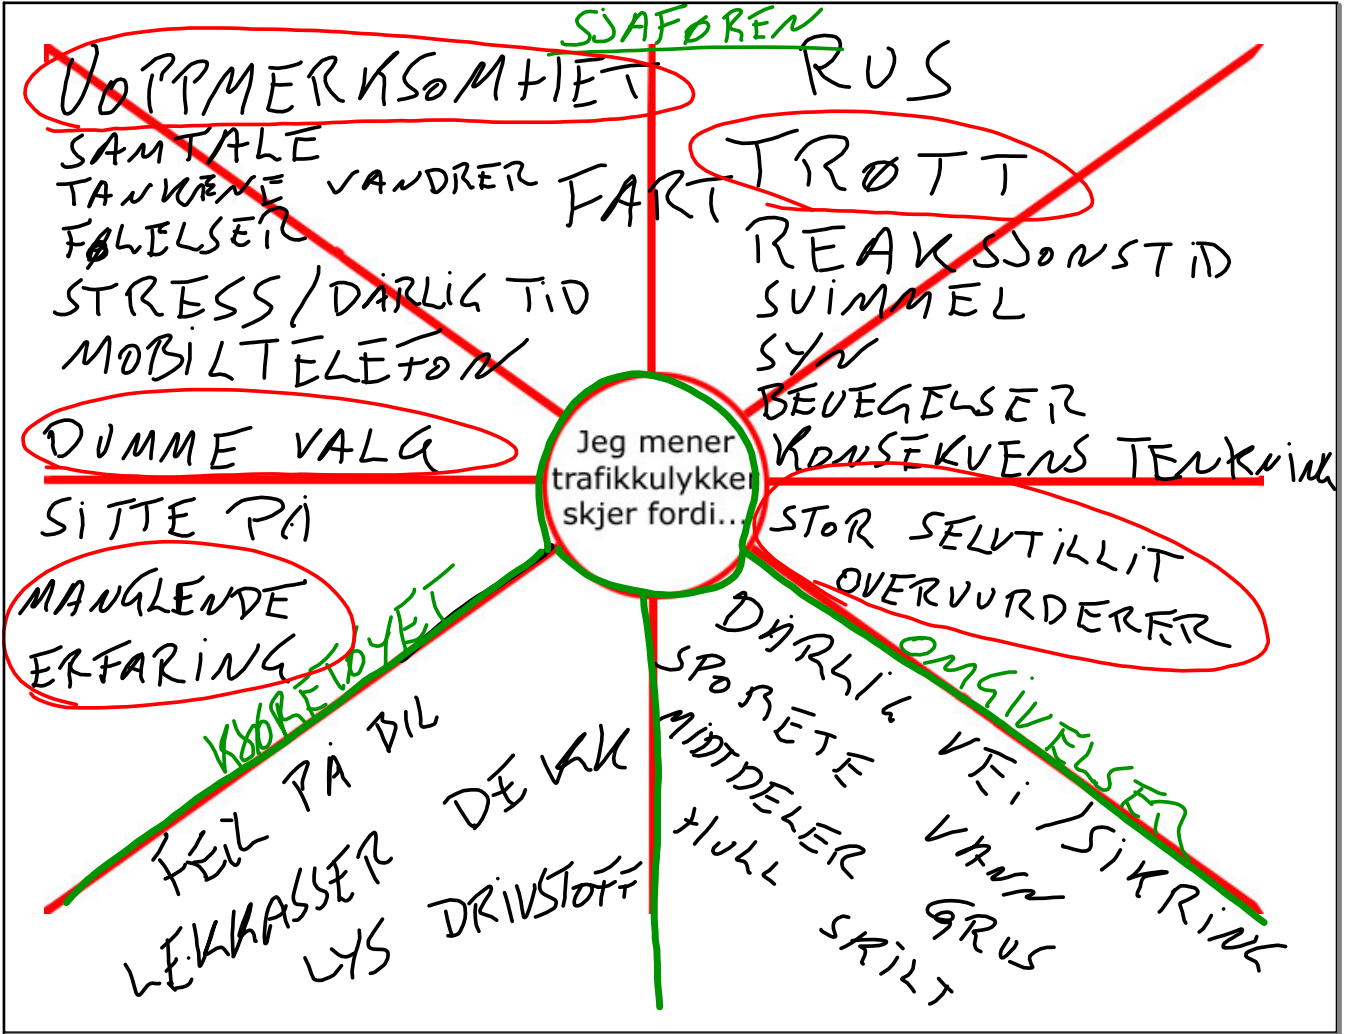 SJAFØREN
UOPPMERKSOMHET
SAMTALE
TANKENE VANDRER
FØLELSER
STRESS/DÅRLIG TID
MOBILTELEFON
DUMME VALG
SITTE PÅ
MANGLENDE
ERFARING
FART
RUS
TRØTT
REAKSJONSTID
SVIMMEL
SYN
BEVEGELSER
KONSEKVENS TENKNING
STOR SELVTILLIT
OVERVURDERER
Jeg mener
trafikkulykker
skjer fordi...
KJØRETØYET
FEIL PÅ BIL
LEKKASSER
LYS
DEKK
DRIVSTOFF
OMGIVELSER
DÅRLIG VEI/SIKRING
SPORETE
MIDTDELER
HULL
VANN
GRUS
SKILT